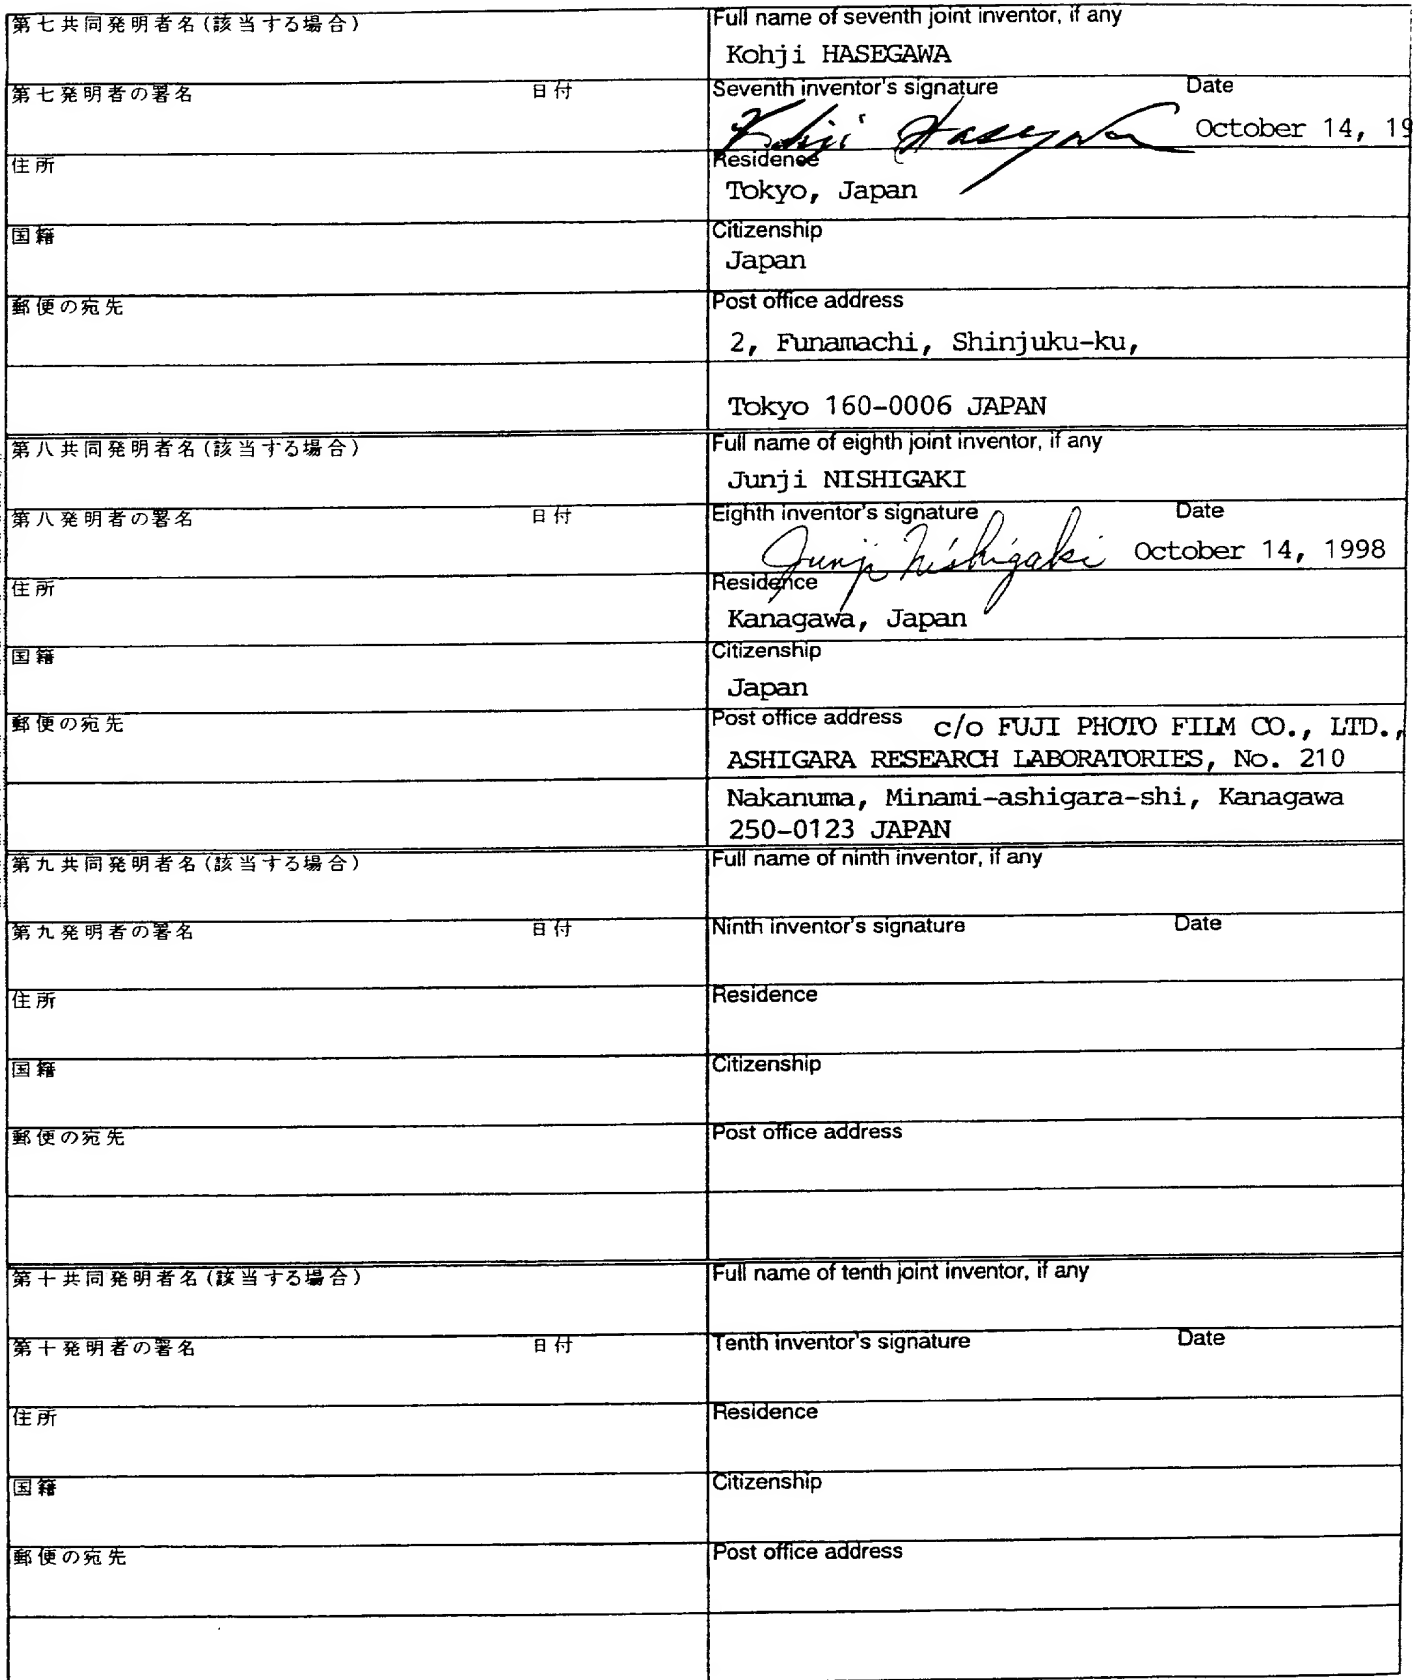 第七共同発明者名(該当する場合)
Full name of seventh joint inventor, if any
Kohji HASEGAWA
第七発明者の署名 日付
Seventh inventor's signature Date
Kohji Hasegawa October 14, 19
住所
Residence
Tokyo, Japan
国籍
Citizenship
Japan
郵便の宛先
Post office address
2, Funamachi, Shinjuku-ku,
Tokyo 160-0006 JAPAN
第八共同発明者名(該当する場合)
Full name of eighth joint inventor, if any
Junji NISHIGAKI
第八発明者の署名 日付
Eighth inventor's signature Date
Junji Nishigaki October 14, 1998
住所
Residence
Kanagawa, Japan
国籍
Citizenship
Japan
郵便の宛先
Post office address c/o FUJI PHOTO FILM CO., LTD.,
ASHIGARA RESEARCH LABORATORIES, No. 210
Nakanuma, Minami-ashigara-shi, Kanagawa
250-0123 JAPAN
第九共同発明者名(該当する場合)
Full name of ninth inventor, if any
第九発明者の署名 日付
Ninth inventor's signature Date
住所
Residence
国籍
Citizenship
郵便の宛先
Post office address
第十共同発明者名(該当する場合)
Full name of tenth joint inventor, if any
第十発明者の署名 日付
Tenth inventor's signature Date
住所
Residence
国籍
Citizenship
郵便の宛先
Post office address